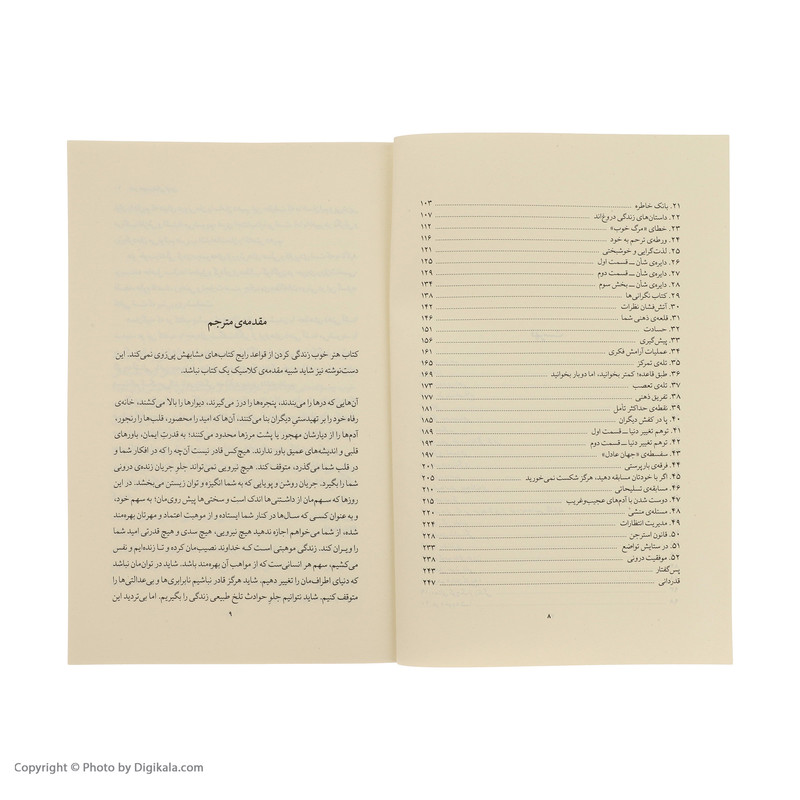 ۲۱. بانک خاطره ۱۰۳
۲۲. داستان‌های زندگی دروغ‌اند ۱۰۷
۲۳. خطای «مرگ خوب» ۱۱۲
۲۴. ورطه‌ی ترحم به خود ۱۱۶
۲۵. لذت‌گرایی و خوشبختی ۱۲۱
۲۶. دایره‌ی شأن ــ قسمت اول ۱۲۵
۲۷. دایره‌ی شأن ــ قسمت دوم ۱۲۹
۲۸. دایره‌ی شأن ــ بخش سوم ۱۳۴
۲۹. کتاب نگرانی‌ها ۱۳۸
۳۰. آتش‌فشان نظرات ۱۴۲
۳۱. قلعه‌ی ذهنی شما ۱۴۶
۳۲. حسادت ۱۵۱
۳۳. پیش‌گیری ۱۵۶
۳۴. عملیات آرامش فکری ۱۶۱
۳۵. تله‌ی تمرکز ۱۶۵
۳۶. طبق قاعده؛ کمتر بخوانید، اما دوبار بخوانید ۱۶۹
۳۷. تله‌ی تعصب ۱۷۳
۳۸. تفریق ذهنی ۱۷۷
۳۹. نقطه‌ی حداکثر تأمل ۱۸۱
۴۰. پا در کفش دیگران ۱۸۵
۴۱. توهم تغییر دنیا ــ قسمت اول ۱۸۹
۴۲. توهم تغییر دنیا ــ قسمت دوم ۱۹۳
۴۳. سفسطه‌ی «جهان عادل» ۱۹۷
۴۴. فرقه‌ی بارپرستی ۲۰۱
۴۵. اگر با خودتان مسابقه دهید، هرگز شکست نمی‌خورید ۲۰۵
۴۶. مسابقه‌ی تسلیحاتی ۲۱۰
۴۷. دوست شدن با آدم‌های عجیب‌وغریب ۲۱۵
۴۸. مسئله‌ی منشی ۲۲۰
۴۹. مدیریت انتظارات ۲۲۴
۵۰. قانون استرجن ۲۲۸
۵۱. در ستایش تواضع ۲۳۳
۵۲. موفقیت درونی ۲۳۸
پس‌گفتار ۲۴۳
قدردانی ۲۴۷
۸
مقدمه‌ی مترجم
کتاب هنر خوب زندگی کردن از قواعد رایج کتاب‌های مشابهش پی‌روی نمی‌کند. این
دست‌نوشته نیز شاید شبیه مقدمه‌ی کلاسیک یک کتاب نباشد.
آن‌هایی که درها را می‌بندند، پنجره‌ها را درز می‌گیرند، دیوارها را بالا می‌کشند، خانه‌ی
رفاه خود را بر تهیدستی دیگران بنا می‌کنند، آن‌ها که امید را محصور، قلب‌ها را رنجور،
آدم‌ها را از دیارشان مهجور یا پشت مرزها محدود می‌کنند؛ به قدرتِ ایمان، باورهای
قلبی و اندیشه‌های عمیق باور ندارند. هیچ‌کس قادر نیست آن‌چه را که در افکار شما و
در قلب شما می‌گذرد، متوقف کند. هیچ نیرویی نمی‌تواند جلوِ جریان زنده‌ی درونی
شما را بگیرد. جریان روشن و پویایی که به شما انگیزه و توان زیستن می‌بخشد. در این
روزها که سهم‌مان از داشتنی‌ها اندک است و سختی‌ها پیش روی‌مان؛ به سهم خود،
و به عنوان کسی که سال‌ها در کنار شما ایستاده و از موهبت اعتماد و مهرتان بهره‌مند
شده، از شما می‌خواهم اجازه ندهید هیچ نیرویی، هیچ سدی و هیچ قدرتی امید شما
را ویران کند. زندگی موهبتی است کـه خداوند نصیب‌مان کرده و تـا زنده‌ایم و نفس
می‌کشیم، سهم هر انسانی‌ست که از مواهب آن بهره‌مند باشد. شاید در توان‌مان نباشد
که دنیای اطراف‌مان را تغییر دهیم. شاید هرگز قادر نباشیم نابرابری‌ها و بی‌عدالتی‌ها را
متوقف کنیم. شاید نتوانیم جلوِ حوادث تلخ طبیعی زندگی را بگیریم. اما بی‌تردید این
۹
Copyright © Photo by Digikala.com